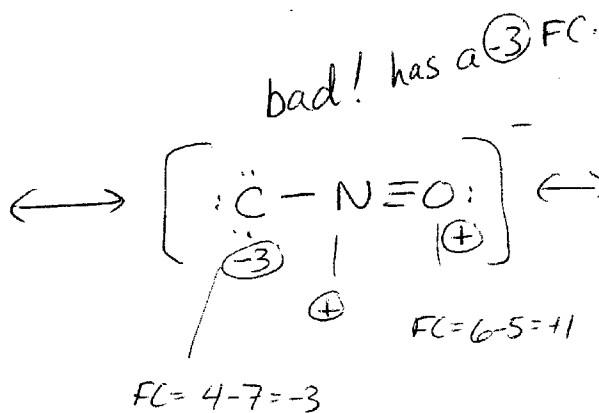 bad! has a -3 FC.
⟷ [:C̈ — N ≡ O:]⁻ ⟷
-3 + +
FC = 6-5 = +1
FC = 4-7 = -3